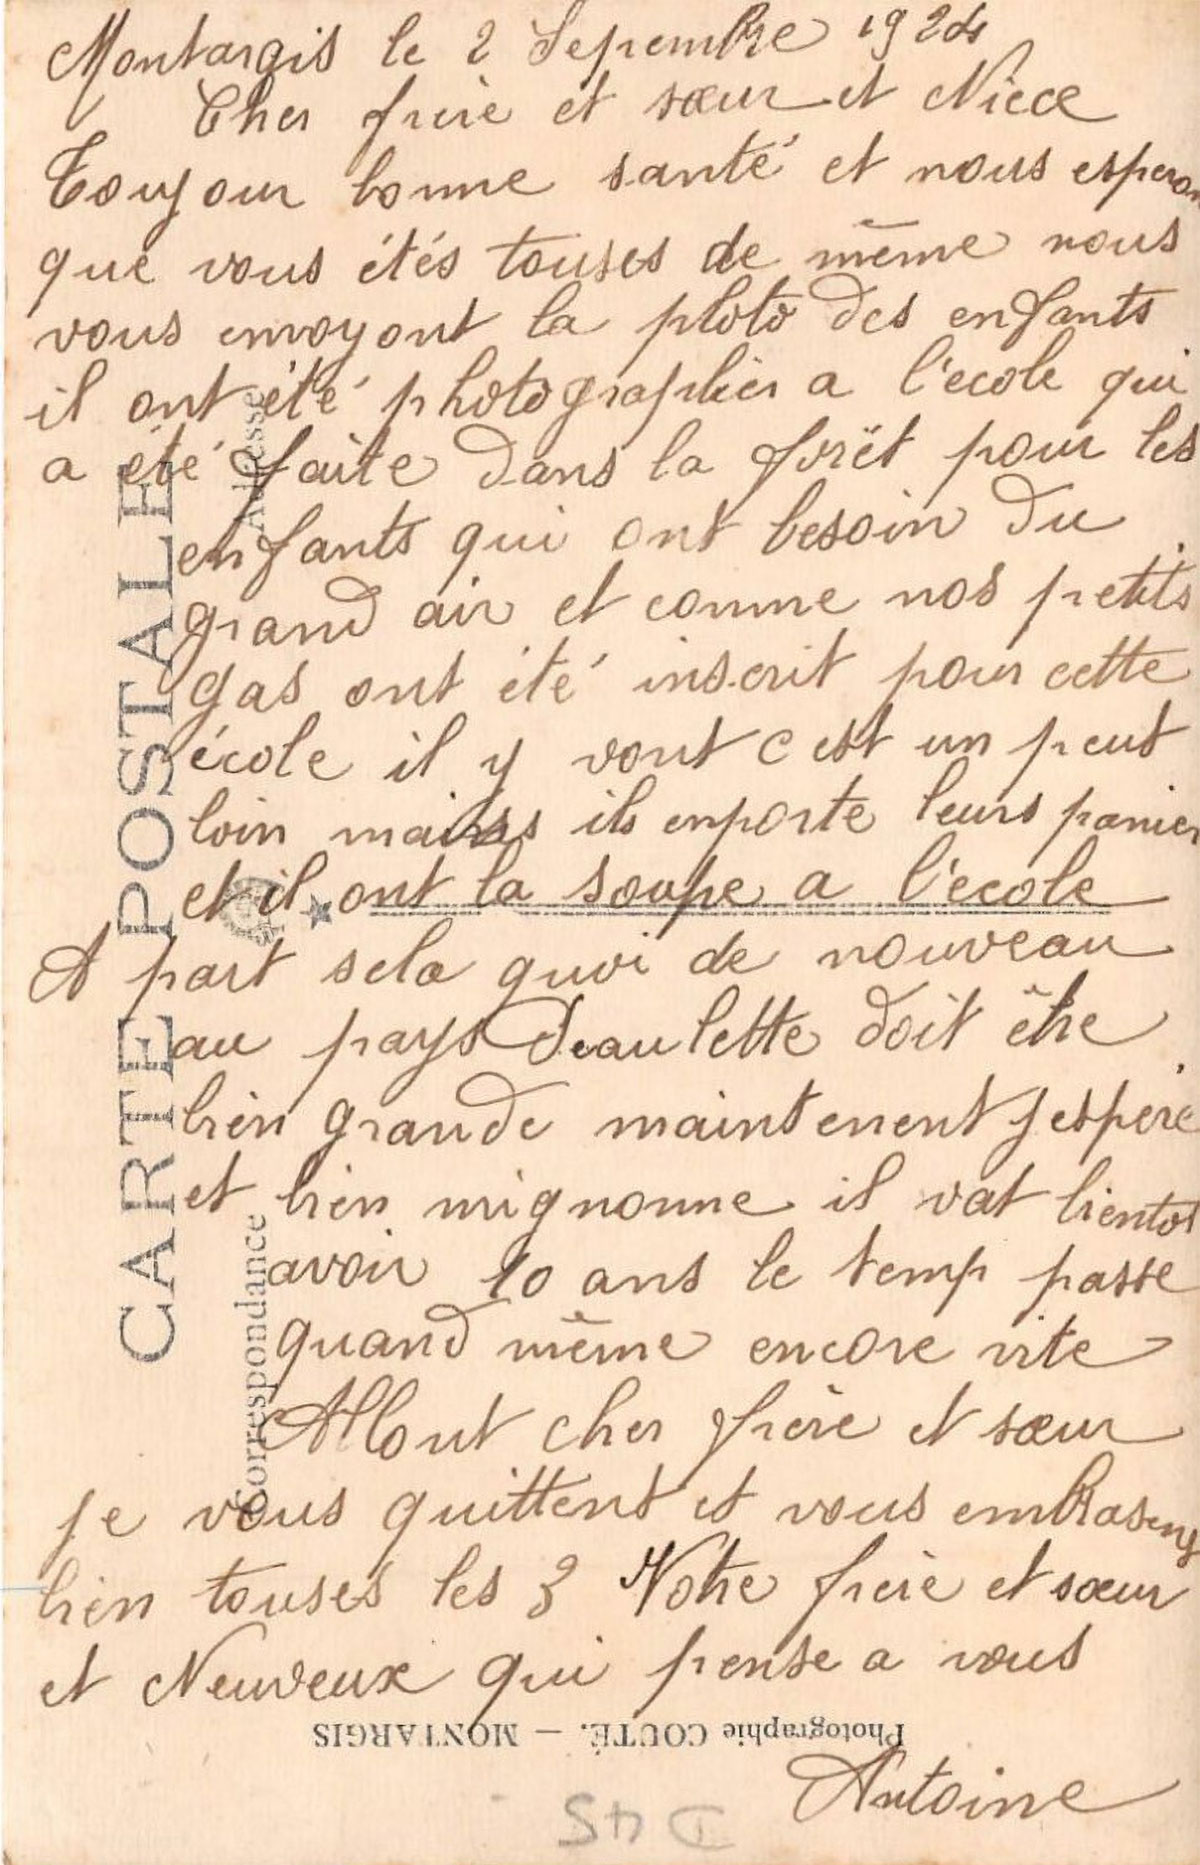 Montargis le 2 Sepembre 1924
Cher frère et sœur et Niece
Toujour bonne santé et nous esperon
que vous étés touses de même nous
vous envoyont la photo des enfants
il ont été photographier a l'ecole qui
a été faite dans la forêt pour les
enfants qui ont besoin du
grand air et comme nos petits
gas ont été inscrit pour cette
école il y vont c est un peut
loin mais ils enporte leurs panier
et il ont la soupe a l'ecole
A part sela quoi de nouveau
au pays lette doit être
bien grande maintenent j espere
et bien mignonne il vat bientot
avoir 10 ans le temp passe
quand même encore vite
Allont cher frère et sœur
je vous quittent et vous embrasens
bien touses les 3 Notre frère et sœur
et Neuveux qui pense a vous
Antoine
CARTE POSTALE
Correspondance
Adresse
Photographie COUTÉ. — MONTARGIS
D 45